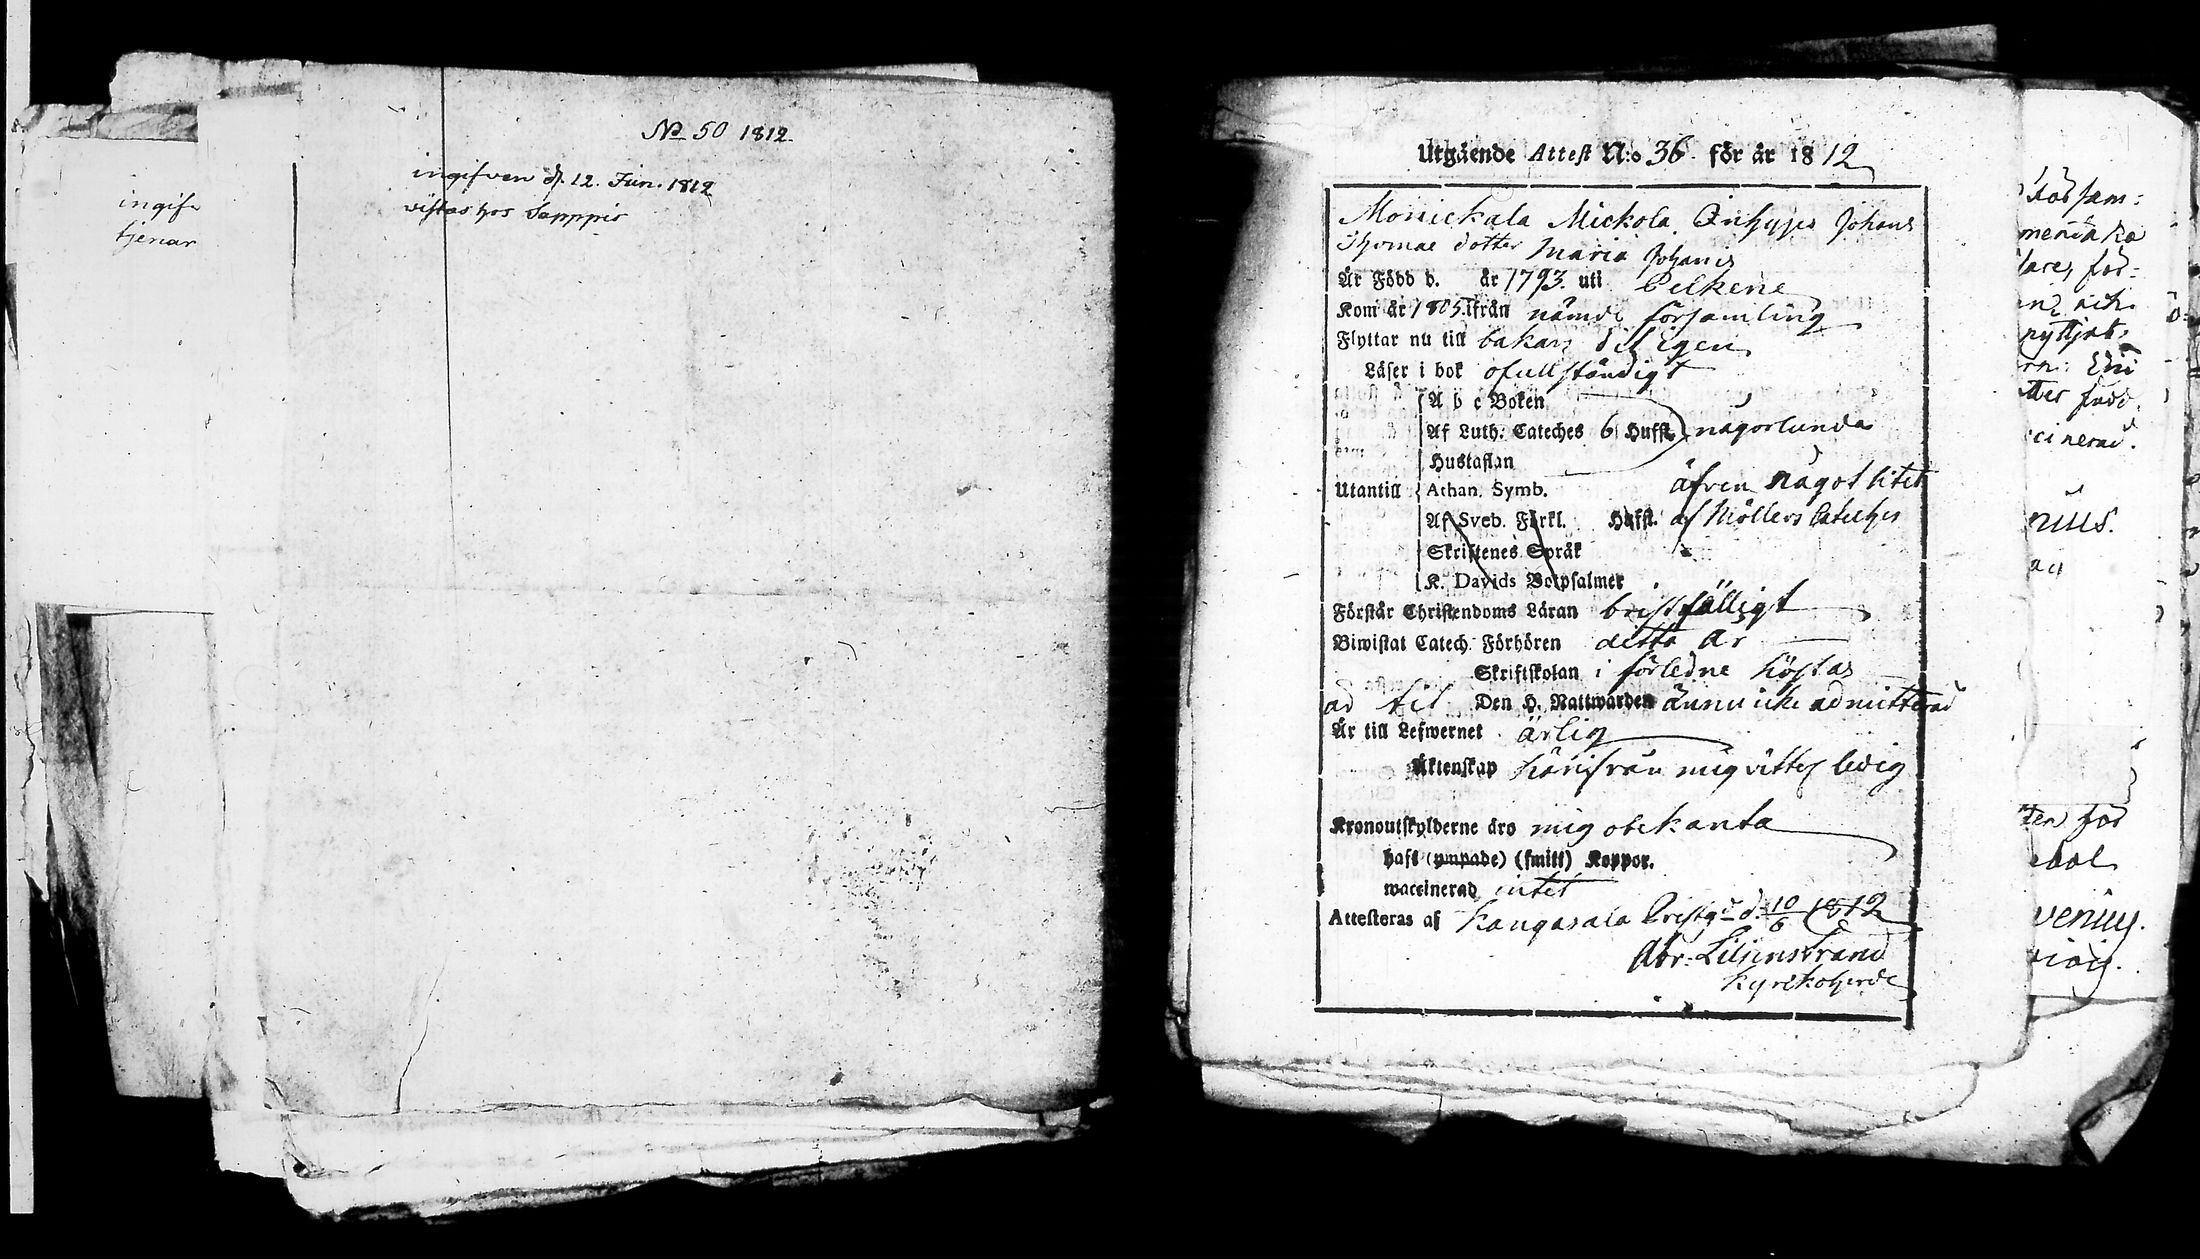 No 50 1812.
ingifven d. 12. Jun. 1812
vistas hos Sepppis
ingifv
tjenar
Utgående Attest N:o 36. för år 1812
Monickala Mickola Inhyses Johans
Thomae dotter Maria Johans
Är Född d. år 1793. uti Pelkene
Kom år 1805. ifrån nämde församling
Flyttar nu till bakas dit igen
Läser i bok ofullständigt
A b c Boken
Af Luth. Cateches 6 Hufst. någorlunda
Hustaflan
Utantill Athan. Symb. äfven något litet
Af Sveb. Förkl. Hufst. af Möllers Cateches
Skriftenes Språk
K. Davids Botpsalmer
Förstår Christendoms Läran bristfälligt
Biwistat Catech. Förhören detta år
Skriftskolan i förledne höstas
ad til Den H. Nattwarden ännu icke admitterad
Är till Lefwernet ärlig
Äktenskap härifrån mig vitterl. ledig
Kronoutskylderne äro mig obekanta
haft (ympade) (smitt) Koppor.
waccinerad intet
Attesteras af Kangasala Prestgd d. 10/6 1812
Abr. Liljenstrand
Kyrkoherde
försam:
ares för:
och
nyttjat
Eni
ter född
cinerad.
nius.
ten för